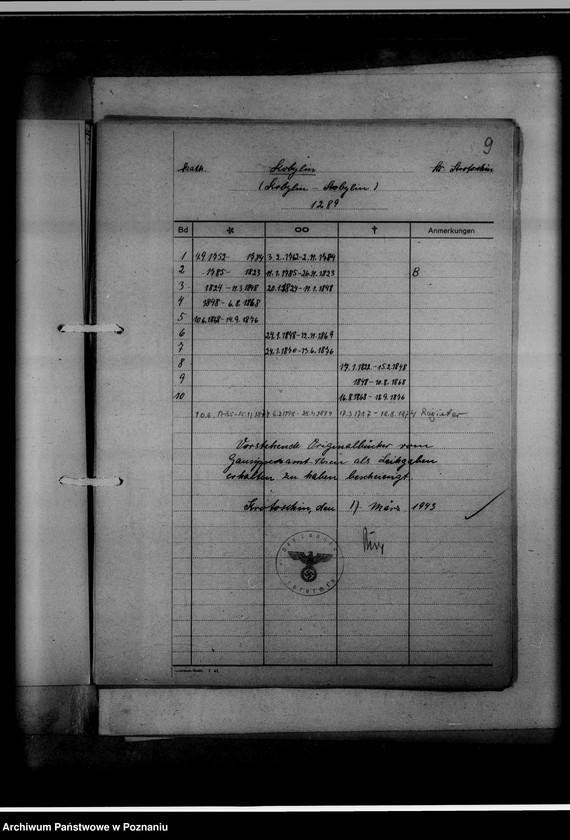 9
kath. Kobylin Kr. Krotoschin
(Kobylin - Kobylin)
1289
Bd * ∞ † Anmerkungen
1 4.9.1752- 1784 3.2.1762-2.11.1784
2 1785- 1823 11.1.1785-26.11.1823 B
3 1824-11.3.1848 20.1.1824-11.1.1848
4 1848-6.8.1868
5 10.6.1868-14.9.1876
6 24.1.1848-12.11.1869
7 24.1.1870-13.6.1876
8 17.1.1822-15.2.1848
9 1848-10.8.1868
10 16.8.1868-12.9.1876
Register
Vorstehende Originalbücher vom
Gausippenamt Posen als Leihgaben
erhalten zu haben bescheinigt.
Krotoschin, den 17. März 1943
Archiwum Państwowe w Poznaniu